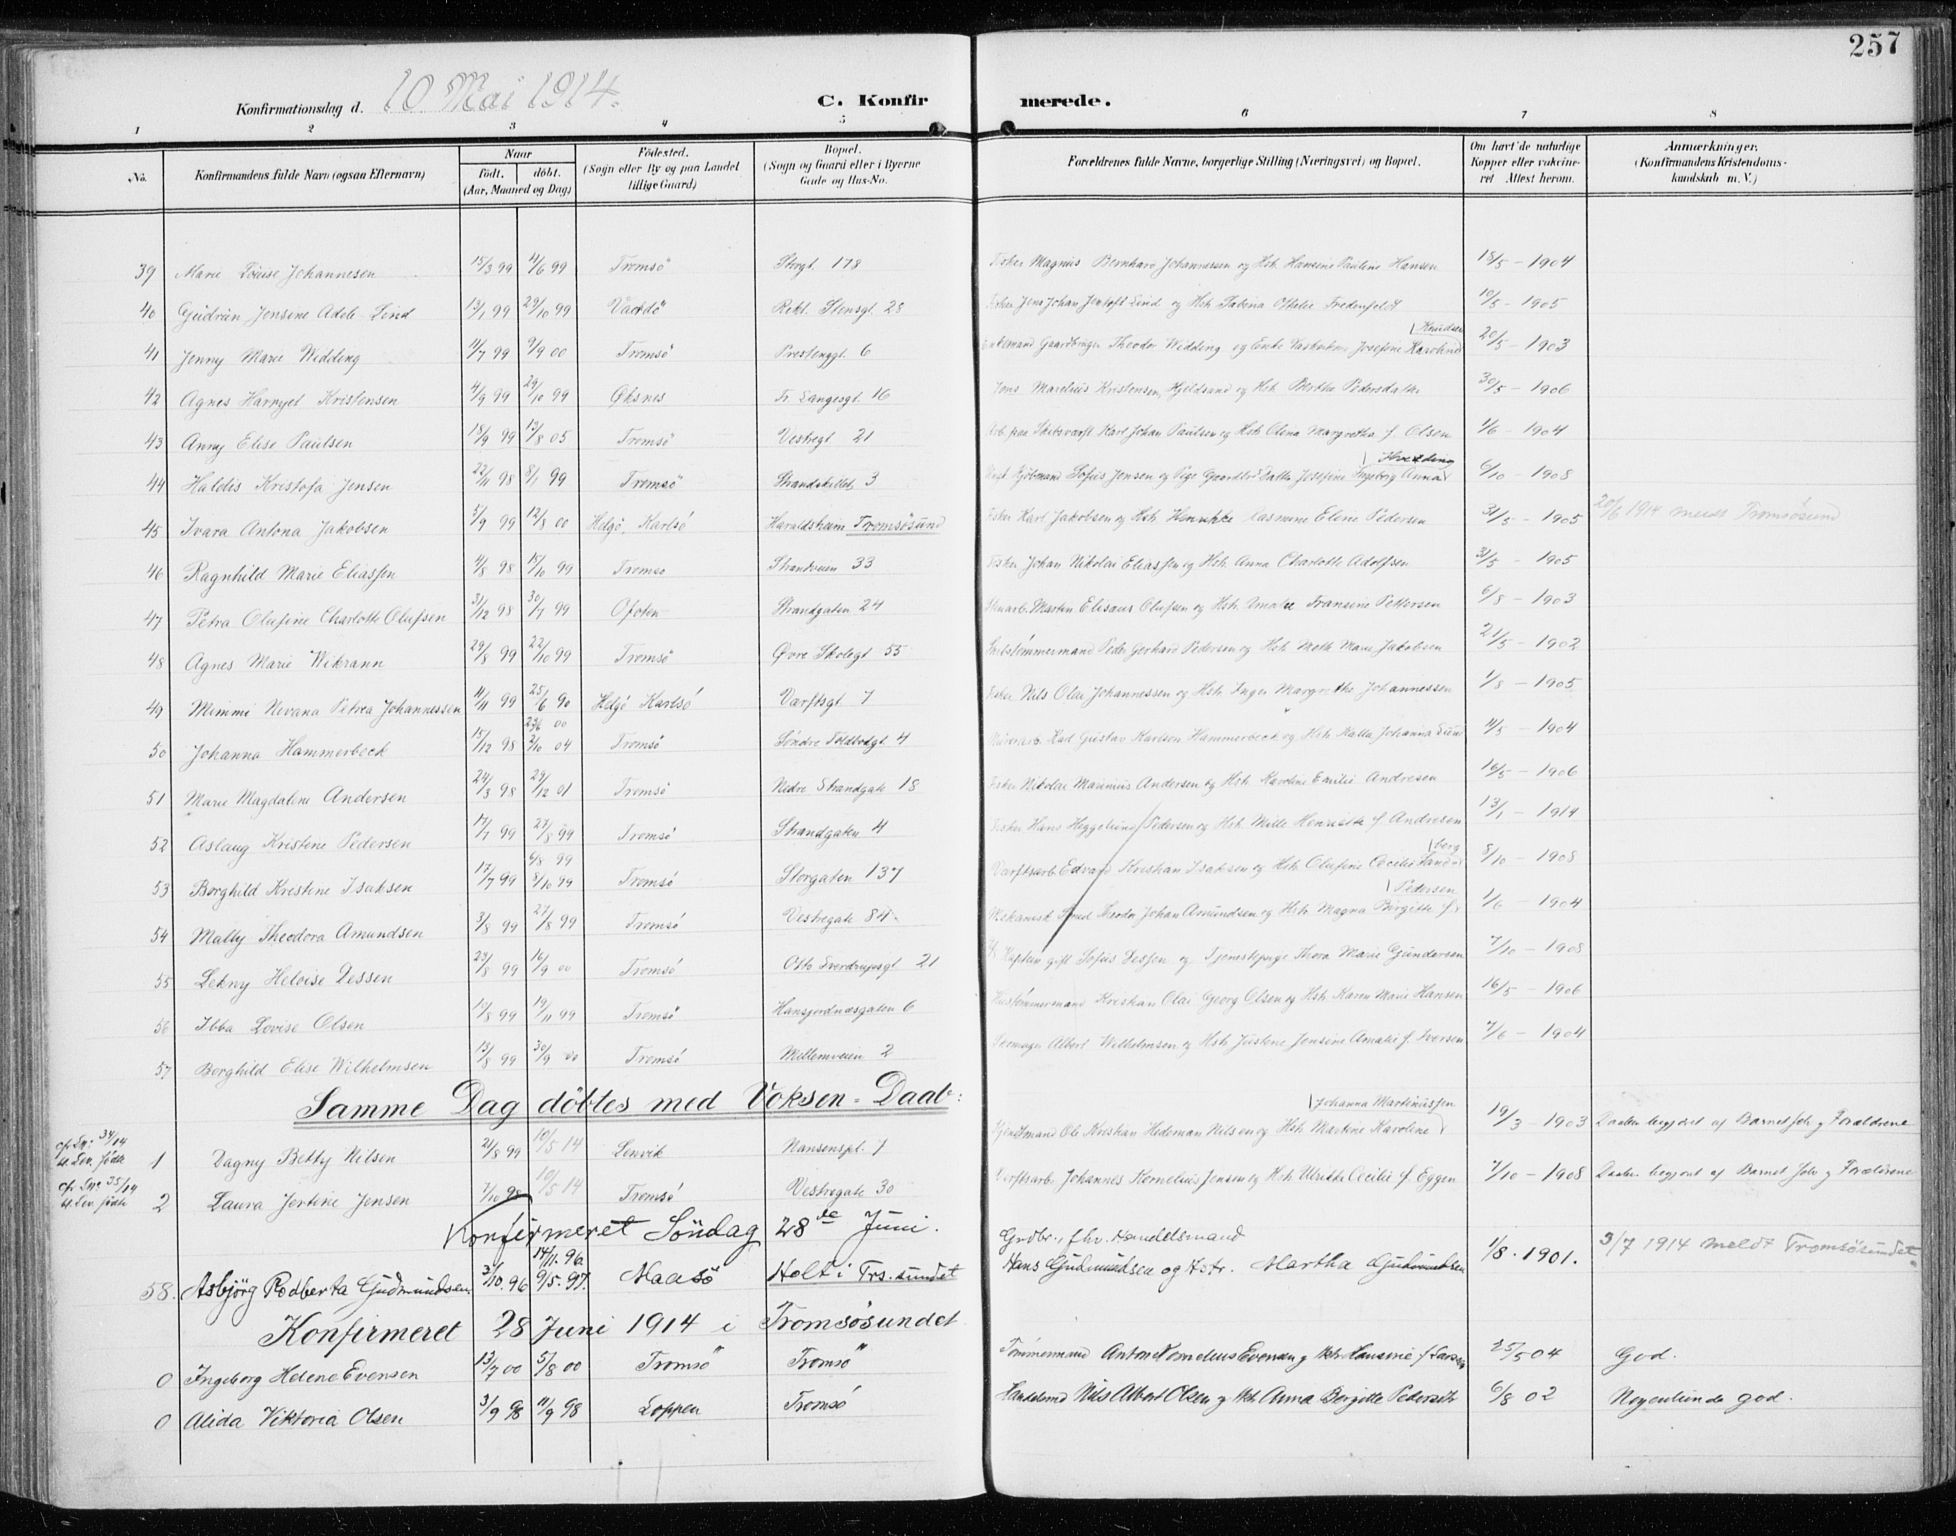 257
Konfirmationsdag d. 10 Mai 1914.
C. Konfirmerede.
1 2 3 4 5 6 7 8
No. Konfirmandens fulde Navn (ogsaa Efternavn) Naar født. døbt. (Aar, Maaned og Dag) Fødested. (Sogn eller By og paa Landet tillige Gaard) Bopæl. (Sogn og Gaard eller i Byerne Gade og Hus-No. Forældrenes fulde Navne, borgerlige Stilling (Næringsvei) og Bopæl. Om havt de naturlige Kopper eller vakcineret Attest herom. Anmærkninger. (Konfirmandens Kristendomskundskab m. V.)
39 Marie Lovise Johannesen 15/3 99 4/6 99 Tromsø Storgt. 178 Fisker Magnus Bernhard Johannessen og Hst. Hansine Pauline Hansen 18/5 - 1904
40 Gudrun Jensine Adele Lind 13/1 99 29/10 99 Vardø Rekt. Stensgt. 28 Fisker Jens Johan Jentoft Lind og Hst. Tabena Othelie Fredenfeldt 10/5 - 1905
41 Jenny Marie Widding 11/7 99 9/9 00 Tromsø Prestenggt. 6 Gaardbruger Theodor Widding og Enke Josefine Karoline Knudsen 20/5 - 1903
42 Agnes Harryet Kristensen 4/9 99 29/10 99 Øksnes Fr. Langesgt. 16 Jens Marelius Kristensen, Hjeldsand og Hst. Bertha Pedersdatter 30/5 - 1906
43 Anny Elise Paulsen 18/9 99 13/8 05 Tromsø Vestregt. 21 Arb. paa Skibsværft Karl Johan Paulsen og Hst. Olena Margretha f. Olsen 1/6 - 1904
44 Haldis Kristofa Jensen 22/11 98 8/1 99 Tromsø Strandskillet 3 Sofus Jensen og Pige Josefine Ingeborg Anna 6/10 - 1908
45 Ivara Antona Jakobsen 5/9 99 12/8 00 Helgø, Karlsø Haraldsheim Tromsøsund Fisker Karl Jakobsen og Hst. Henrikke Rasmine Eline Pedersen 31/5 - 1905 20/6 1914 meldt Tromsøsund
46 Ragnhild Marie Eliassen 4/8 98 15/10 99 Tromsø Strandveien 33 Fisker Johan Nikolai Eliassen og Hst. Anna Charlotte Adolfsen 31/5 - 1905
47 Petra Olufine Charlotte Olufsen 31/12 98 30/7 99 Ofoten Strandgaten 24 Martin Elisæus Olufsen og Hst. Amalie Fransine Pettersen 6/8 - 1903
48 Agnes Marie Wikrann 29/8 99 22/10 99 Tromsø Øvre Skolegt 55 Skibstømmermand Peder Gerhard Pedersen og Hst. Meth Marie Jakobsen 21/5 - 1902
49 Mimmi Nivana Petrea Johannessen 11/11 99 25/6 90 Helgø Karlsø Værftsgt. 7 Fisker Nils Olai Johannessen og Hst. Inger Margrethe Johannessen 1/8 - 1905
50 Johanna Hammerbeck 15/12 98 23/6 00 2/10 04 Tromsø Søndre Toldbodgt. 4 Karl Gustav Karlson Hammerbeck og Hst. Kalla Johanna Lund 4/5 - 1904
51 Marie Magdalene Andersen 24/3 98 29/12 01 Tromsø Nedre Strandgate 18 Fisker Nikolai Marinius Andersen og Hst. Karoline Emilie Andresen 16/5 - 1906
52 Aslaug Kristine Pedersen 17/1 99 27/8 99 Tromsø Strandgaten 4 Fisker Hans Heggelund Pedersen og Hst. Mille Henriette f. Andresen 13/1 - 1914
53 Borghild Kristine Isaksen 17/7 99 6/8 99 8/10 99 Tromsø Storgaten 137 Værftsarb. Edvard Kristian Isaksen og Hst. Olufine Cecilie Sandberg 8/10 - 1908
54 Mally Theodora Amundsen 3/8 99 27/8 99 Tromsø Vestregate 84 Mekanisk Smed Theodor Johan Amundsen og Hst. Magna Birgitte f. Pedersen 1/6 - 1904
55 Lekny Heloise Dessen 23/8 99 16/9 00 Tromsø Otto Sverdrupsgt 21 Kaptein gift Sofus Dessen og Tjenestepige Thora Marie Gundersen 7/10 - 1908
56 Ibba Lovise Olsen 13/8 99 19/11 99 Tromsø Hansjordnæsgaten 6 Hustømmermand Kristian Olai Georg Olsen og Hst. Karen Marie Hansen 16/5 - 1906
57 Borghild Elise Wilhelmsen 13/8 99 30/9 00 Tromsø Mellemveien 2 Albert Wilhelmsen og Hst. Justine Jensine Amalie f. Iversen 7/6 - 1904
Samme Dag døbtes med Voksen-Daab:
cfr. Lnr. 34/14 lt. Lev. fødte 1 Dagny Betty Nilsen 21/8 99 10/5 14 Lenvik Nansenspl. 7 Ole Kristian Hedeman Nilsen og Hst. Martine Karoline Johanna Martinussen 19/3 - 1903 Daaben begjært af Barnet selv og Forældrene
cfr. Lnr. 35/14 lt. Lev. fødte 2 Laura Jertine Jensen 7/10 98 10/5 14 Tromsø Vestregate 30 Værftsarb. Johannes Kornelius Jensen og Hst. Ulrikke Cecilie f. Eggen 7/10 - 1908 Daaben begjært af Barnet selv og Forældrene
Konfirmeret Søndag 28de Juni.
58. Asbjörg Rodberta Gudmundsen 3/10.96 14/11.96. 9/5.97. Maasö Holt i Trs.sundet Grdbr., fhv. Handelsmand Hans Gudmundsen og Hstr. Martha Gudmundsen 1/8. 1901. 3/7 1914 meldt Tromsøsundet
Konfirmeret 28 Juni 1914 i Tromsøsundet
0 Ingeborg Helene Evensen 13/7 00 5/8 00 Tromsø Tromsø Tømmermand Anton Kornelius Evensen og Hst. Hansine f. Larsen 25/5 04 God.
0 Alida Viktoria Olsen 3/9 98 11/9 98 Loppen Tromsø Nils Albert Olsen og Hst. Anna Bergitte Pedersdtr 6/8 02 Nogenlunde god.